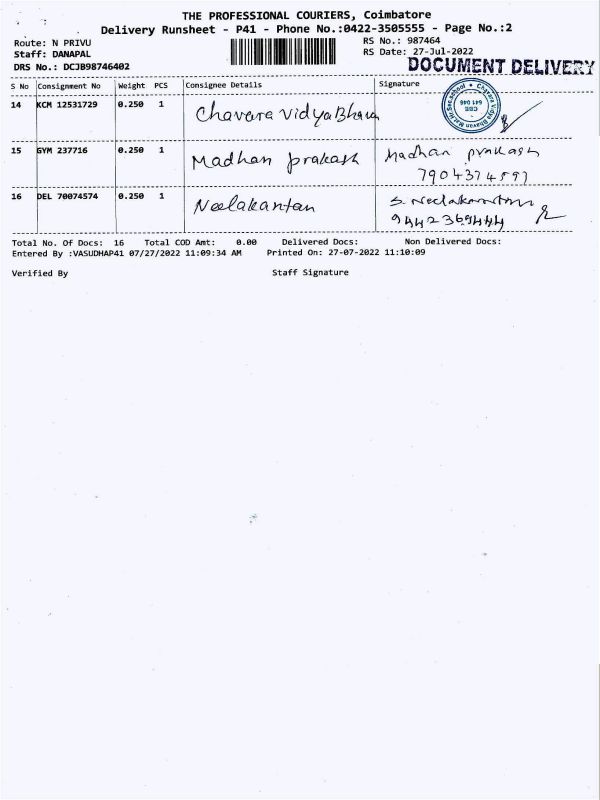 THE PROFESSIONAL COURIERS, Coimbatore
Delivery Runsheet - P41 - Phone No.:0422-3505555 - Page No.:2
Route: N PRIVU RS No.: 987464
Staff: DANAPAL RS Date: 27-Jul-2022
DRS No.: DCJB98746402 DOCUMENT DELIVERY
S No Consignment No Weight PCS Consignee Details Signature
14 KCM 12531729 0.250 1 Chavara Vidya Bhava
15 GYM 237716 0.250 1 Madhan prakash Madhan prakash
7904374597
16 DEL 70074574 0.250 1 Neelakantan S. Neelakantan
9442369444
Total No. Of Docs: 16 Total COD Amt: 0.00 Delivered Docs: Non Delivered Docs:
Entered By :VASUDHAP41 07/27/2022 11:09:34 AM Printed On: 27-07-2022 11:10:09
Verified By Staff Signature